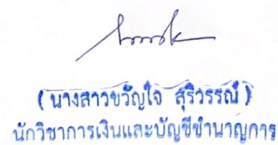 (นางสาวขวัญใจ สุริวรรณ์)
นักวิชาการเงินและบัญชีชำนาญการ